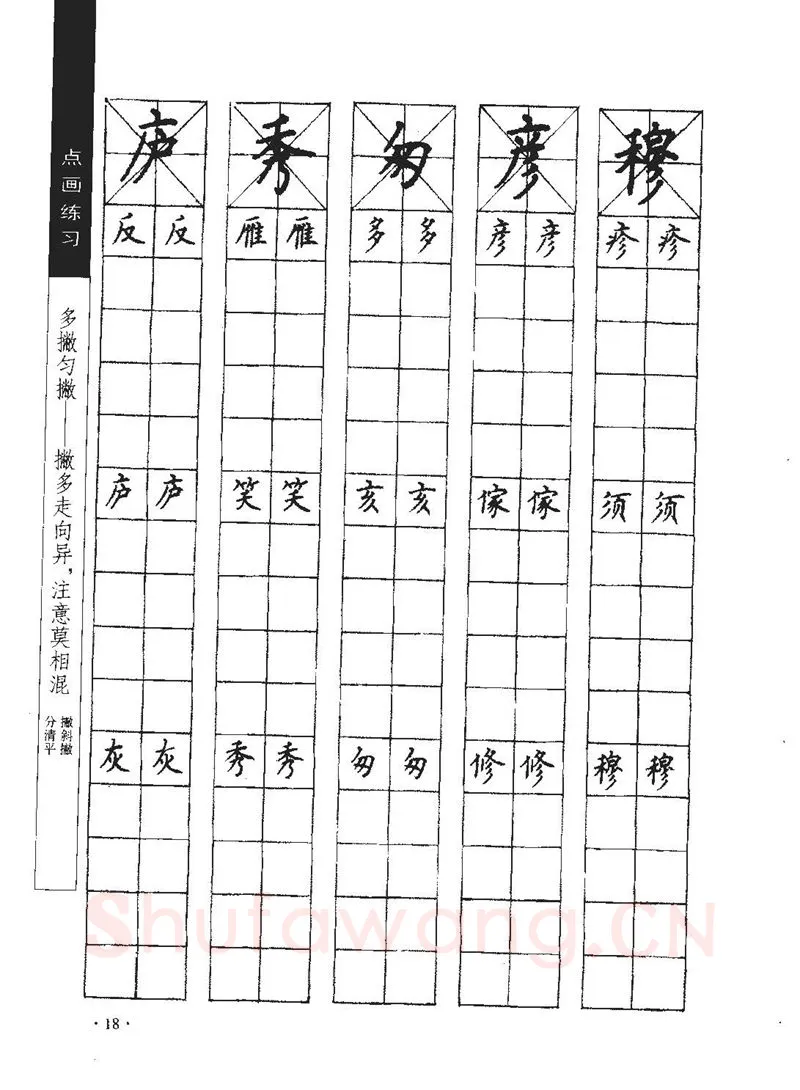 点画练习
多撇匀撇——撇多走向异，注意莫相混
撇斜撇
分清平
庐 秀 匆 彦 穆
反 反 雁 雁 多 多 彦 彦 疹 疹
庐 庐 笑 笑 亥 亥 傢 傢 须 须
灰 灰 秀 秀 匆 匆 修 修 穆 穆
Shufawang.CN
·18·